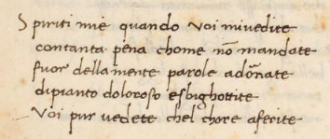 Spiriti mie quando voi mivedite
contanta pena chome nō mandate
fuor dellamente parole adōnate
dipianto doloroso esbighottite
Voi pur vedete chel chore aferite